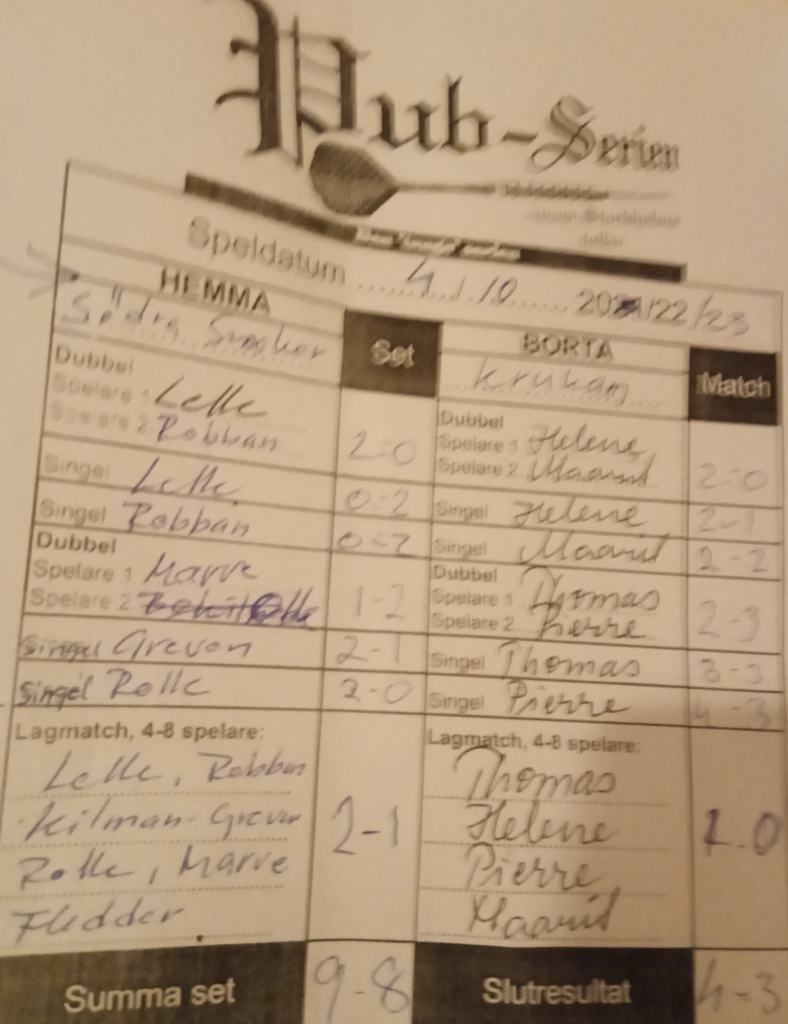 Pub-Serien
Speldatum 4/10 2021/22/23
HEMMA
Södra
Set
BORTA
Krukan
Match
Dubbel
Spelare 1 Lelle
Spelare 2 Robban
2-0
Dubbel
Spelare 1 Helene
Spelare 2 Maarit
2-0
Singel Lelle
0-2
Singel Helene
2-1
Singel Robban
0-2
Singel Maarit
2-2
Dubbel
Spelare 1 Marre
Spelare 2
1-2
Dubbel
Spelare 1 Thomas
Spelare 2 Pierre
2-3
Singel Greven
2-1
Singel Thomas
3-3
Singel Rolle
2-0
Singel Pierre
4-3
Lagmatch, 4-8 spelare:
Lelle, Robban
Kilman-Greven
Rolle, Marre
Fladder
2-1
Lagmatch, 4-8 spelare:
Thomas
Helene
Pierre
Maarit
1-0
Summa set
9-8
Slutresultat
4-3